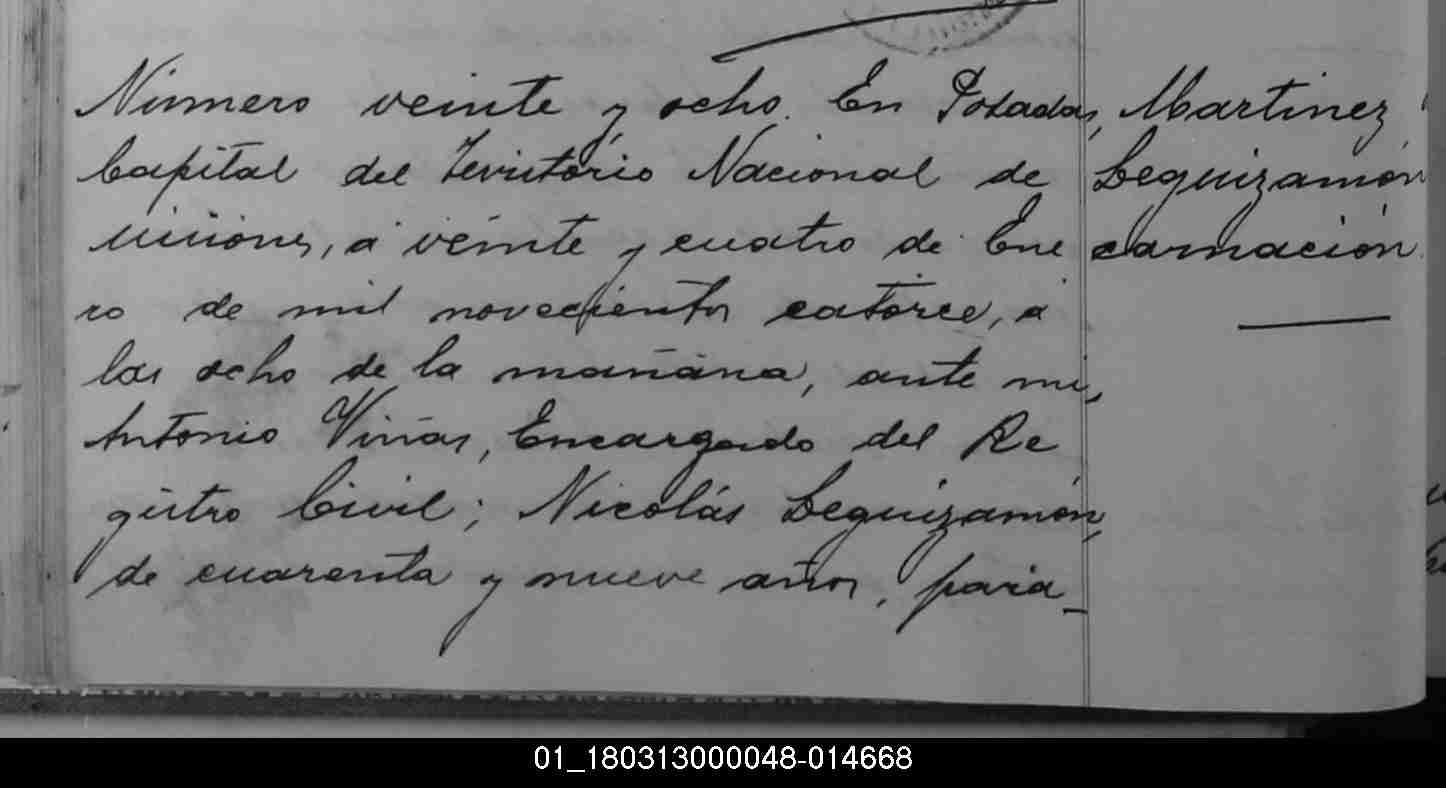 Número veinte y ocho. En Posadas,
Capital del Territorio Nacional de
Misiones, á veinte y cuatro de Ene
ro de mil novecientos catorce, á
las ocho de la mañana, ante mi,
Antonio Viñas, Encargado del Re
gistro Civil; Nicolás Leguizamón,
de cuarenta y nueve años, para-
Martinez
Leguizamón
carnación
01_180313000048-014668